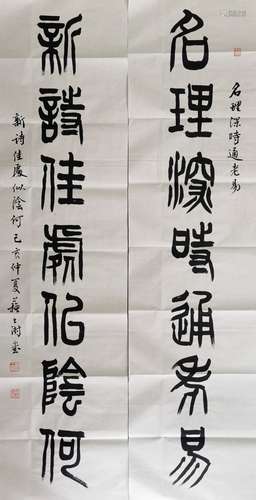 名理深時通老易
名理深時通老易
新詩佳處似陰何
新詩佳處似陰何己亥仲夏蘇